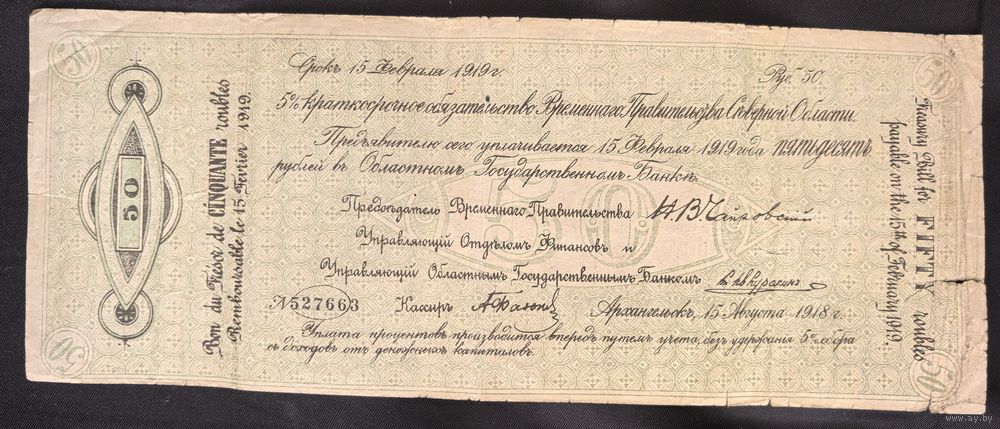 50
50
Срокъ 15 Февраля 1919 г.
Руб. 50.
5% краткосрочное обязательство Временнаго Правительства Сѣверной Области.
Предъявителю сего уплачивается 15 Февраля 1919 года пятьдесятъ
рублей въ Областномъ Государственномъ Банкѣ.
50
Предсѣдатель Временнаго Правительства Н. В. Чайковскій
Управляющій Отдѣломъ Финансовъ и
Управляющій Областнымъ Государственнымъ Банкомъ
№ 527663 Кассиръ
Архангельскъ, 15 Августа 1918 г.
Уплата процентовъ производится впередъ путемъ учета, безъ удержанія 5% сбора
съ доходовъ отъ денежныхъ капиталовъ.
50
Bon du Trésor de CINQUANTE roubles
Remboursable le 15 Fevrier 1919.
Treasury Bill for FIFTY roubles
payable on the 15th of February 1919
50
50
www.ay.by